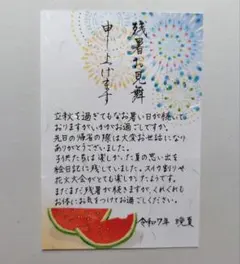 残暑お見舞
申し上げます
立秋を過ぎてもなお暑い日が続いて
おりますがいかがお過ごしですか。
先日の帰省の際は大変お世話になり
ありがとうございました。
子供たちは楽しかった夏の思い出を
絵日記に残していました。スイカ割りや
花火大会がとても楽しかったようです。
まだまだ残暑が続きますが、くれぐれも
お体にお気をつけてお過ごしください。
令和7年 晩夏